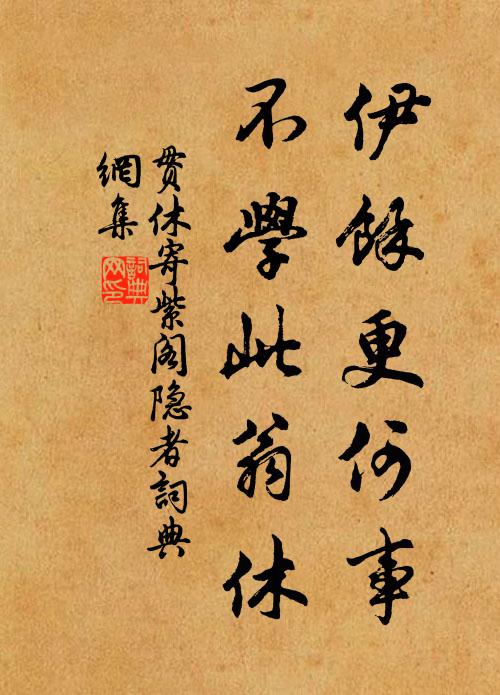 伊餘更何事
不學此翁休
貫休寄紫阁隐者詞典
網集
詞典
网印